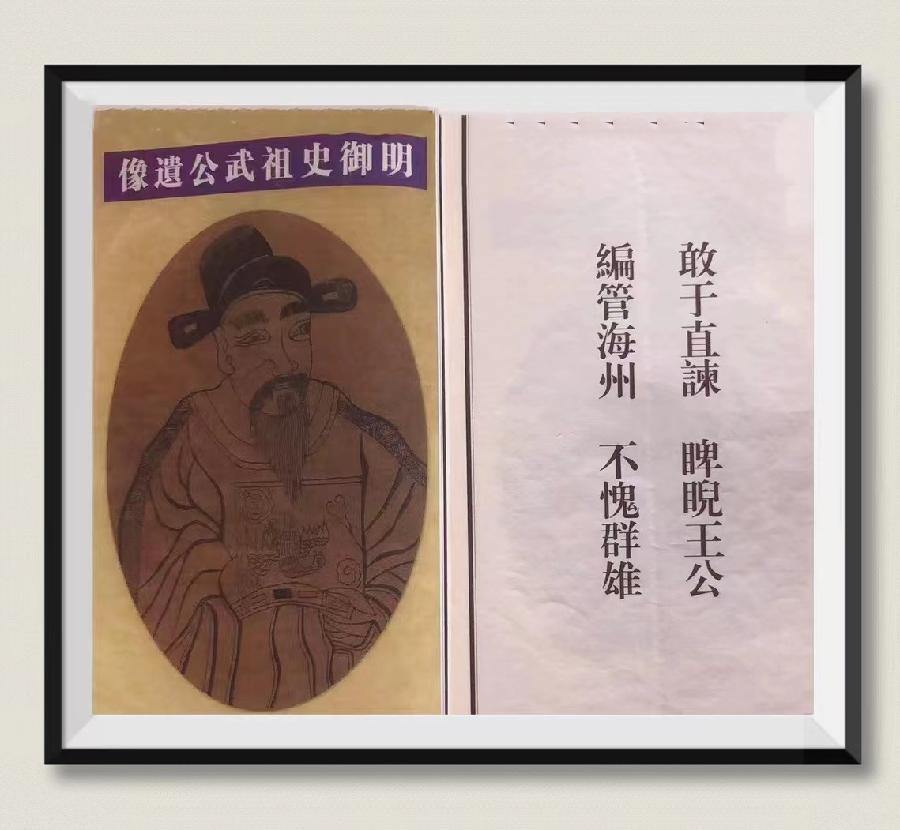 明御史祖武公遺像
敢于直諫 睥睨王公
編管海州 不愧群雄